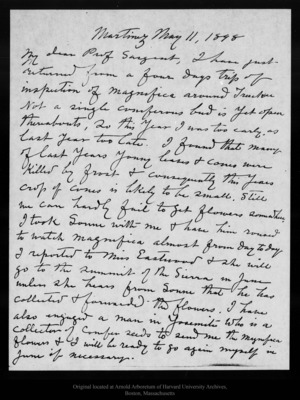 Martinez May 11, 1898
My dear Prof Sargent, I have just
returned from a four days trip of
inspection of Magnifica around Truckee
Not a single coniferous bud is yet open
thereabouts, so this year I was too early, as
last year too late. I found that many
of last years young leaves & cones were
killed by frost & consequently this years
crop of cones is likely to be small. Still
we can hardly fail to get flowers somewhere
I took Sonne with me & have him
to watch Magnifica almost from day to day
I reported to Miss Eastwood & she will
go to the summit of the Sierra in June
unless she hears from Sonne that he has
collected & forwarded the flowers. I have
also engaged a man in Yosemite who is a
collector of conifer seeds to send me the Magnifica
flowers & I will be ready to go again myself in
June if necessary.
Original located at Arnold Arboretum of Harvard University Archives,
Boston, Massachusetts